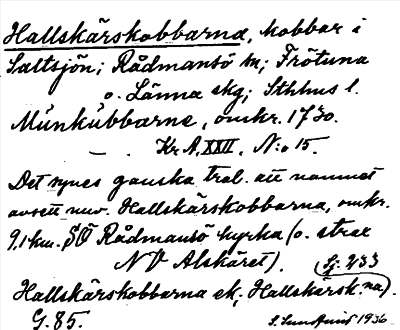 Hallskärskobbarna, kobbar i
Saltsjön; Rådmansö sn; Frötuna
o. Länna skg; Sthlms l.
Münkübbarne, omkr. 1730.
— . Kr. A, XXII, N:o 15.
Det synes ganska trol. att namnet
avsett nuv. Hallskärskobbarna, omkr.
9,1 km. SÖ Rådmansö kyrka (o. strax
NV Alskäret).
(Gj. 233
Hallskärskobbarna ek; Hallskärsk.na).
G. 85. 1936